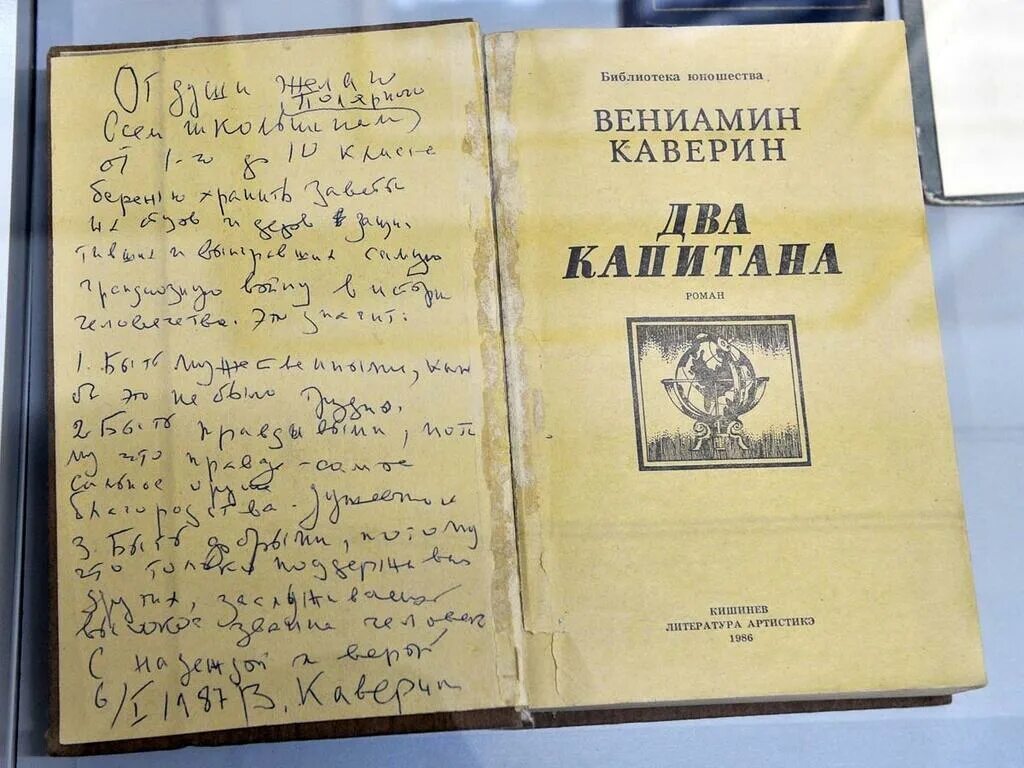 От души желаю
Полярного
Всем школьникам
от 1-го до 10 класса
бережно хранить заветы
их отцов и дедов защи
тивших и выигравших самую
грандиозную войну в истории
человечества. Это значит:
1. Быть мужественными, как
бы это не было трудно.
2 Быть правдивыми, пото
му что правда - самое
сильное оружие
благородства. душевного
3. Быть добрыми, потому
что только поддерживая
других, заслуживаешь
высокое звание человек
С надеждой и верой
6/I 1987 В. Каверин
Библиотека юношества
ВЕНИАМИН
КАВЕРИН
ДВА
КАПИТАНА
РОМАН
КИШИНЕВ
ЛИТЕРАТУРА АРТИСТИКЭ
1986